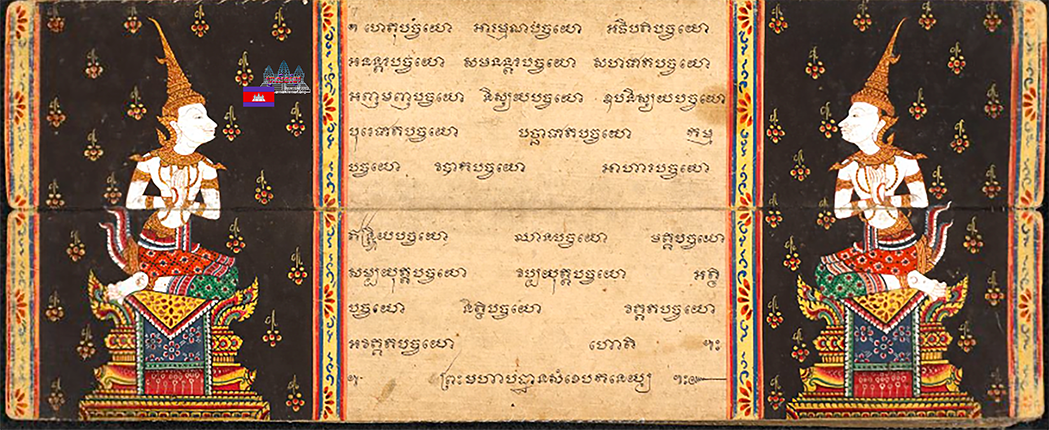 ១ ហេតុបច្ចយោ អារម្មណបច្ចយោ អធិបតិបច្ចយោ
អនន្តរបច្ចយោ សមនន្តរបច្ចយោ សហជាតបច្ចយោ
អញ្ញមញ្ញបច្ចយោ និស្សយបច្ចយោ ឧបនិស្សយបច្ចយោ
បុរេជាតបច្ចយោ បច្ឆាជាតបច្ចយោ កម្ម
បច្ចយោ វិបាកបច្ចយោ អាហារបច្ចយោ
ឥន្ទ្រិយបច្ចយោ ឈានបច្ចយោ មគ្គបច្ចយោ
សម្បយុត្តបច្ចយោ វិប្បយុត្តបច្ចយោ អត្ថិ
បច្ចយោ នត្ថិបច្ចយោ វិគតបច្ចយោ
អវិគតបច្ចយោ ហោតិ ៚
ព្រះមហាបដ្ឋានសំខេប ៚